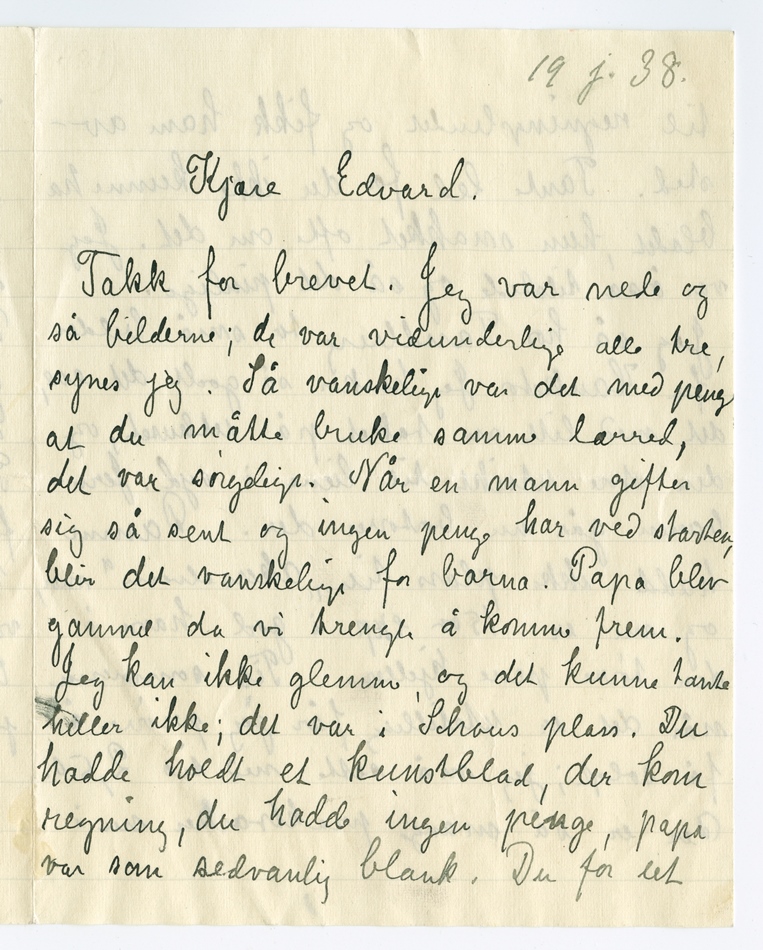 19 j. 38.
Kjære Edvard.
Takk for brevet. Jeg var nede og
så bilderne; de var vidunderlige alle tre,
synes jeg. Så vanskeligt var det med peng
at du måtte bruke samme lærred,
det var sørgeligt. Når en mann gifter
sig så sent og ingen penge har ved starten,
blir det vanskeligt for barna. Papa blev
gammel da vi trengte å komme frem.
Jeg kan ikke glemme, og det kunne tante
heller ikke; det var i Schous plass. Du
hadde holdt et kunstblad, der kom
regning, du hadde ingen penge, papa
var som sedvanlig blank. Du for et